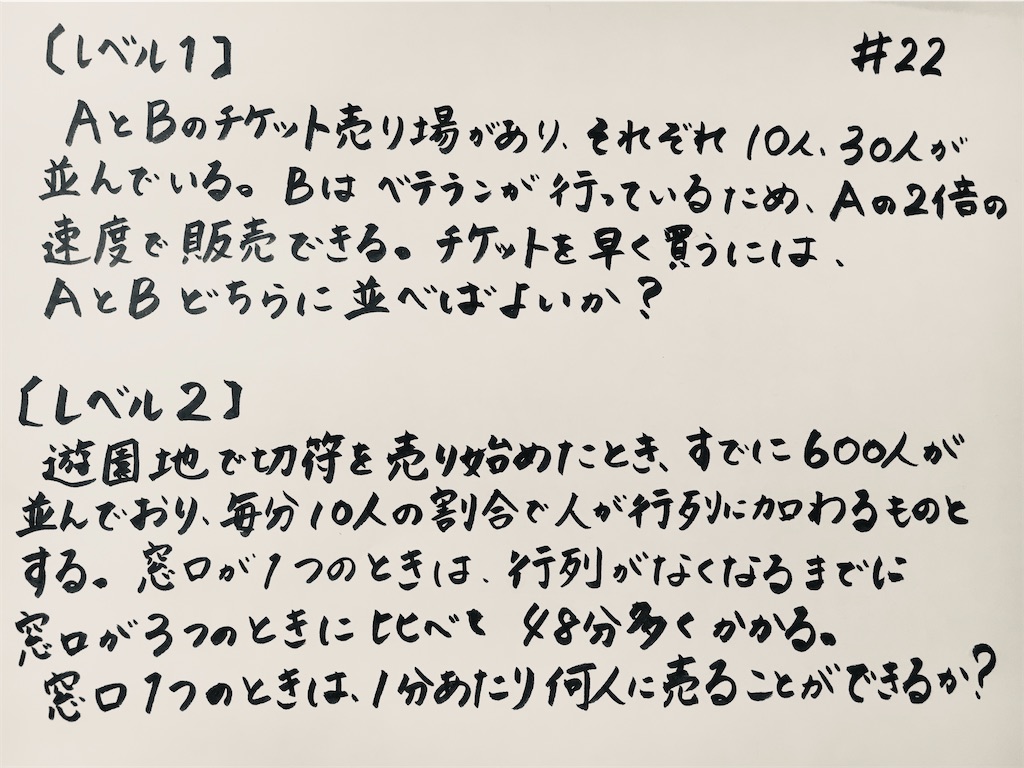 [レベル1] #22
AとBのチケット売り場があり、それぞれ10人、30人が
並んでいる。Bはベテランが行っているため、Aの2倍の
速度で販売できる。チケットを早く買うには、
AとBどちらに並べばよいか?
[レベル2]
遊園地で切符を売り始めたとき、すでに600人が
並んでおり、毎分10人の割合で人が行列に加わるものと
する。窓口が1つのときは、行列がなくなるまでに
窓口が3つのときに比べて48分多くかかる。
窓口1つのときは、1分あたり何人に売ることができるか?